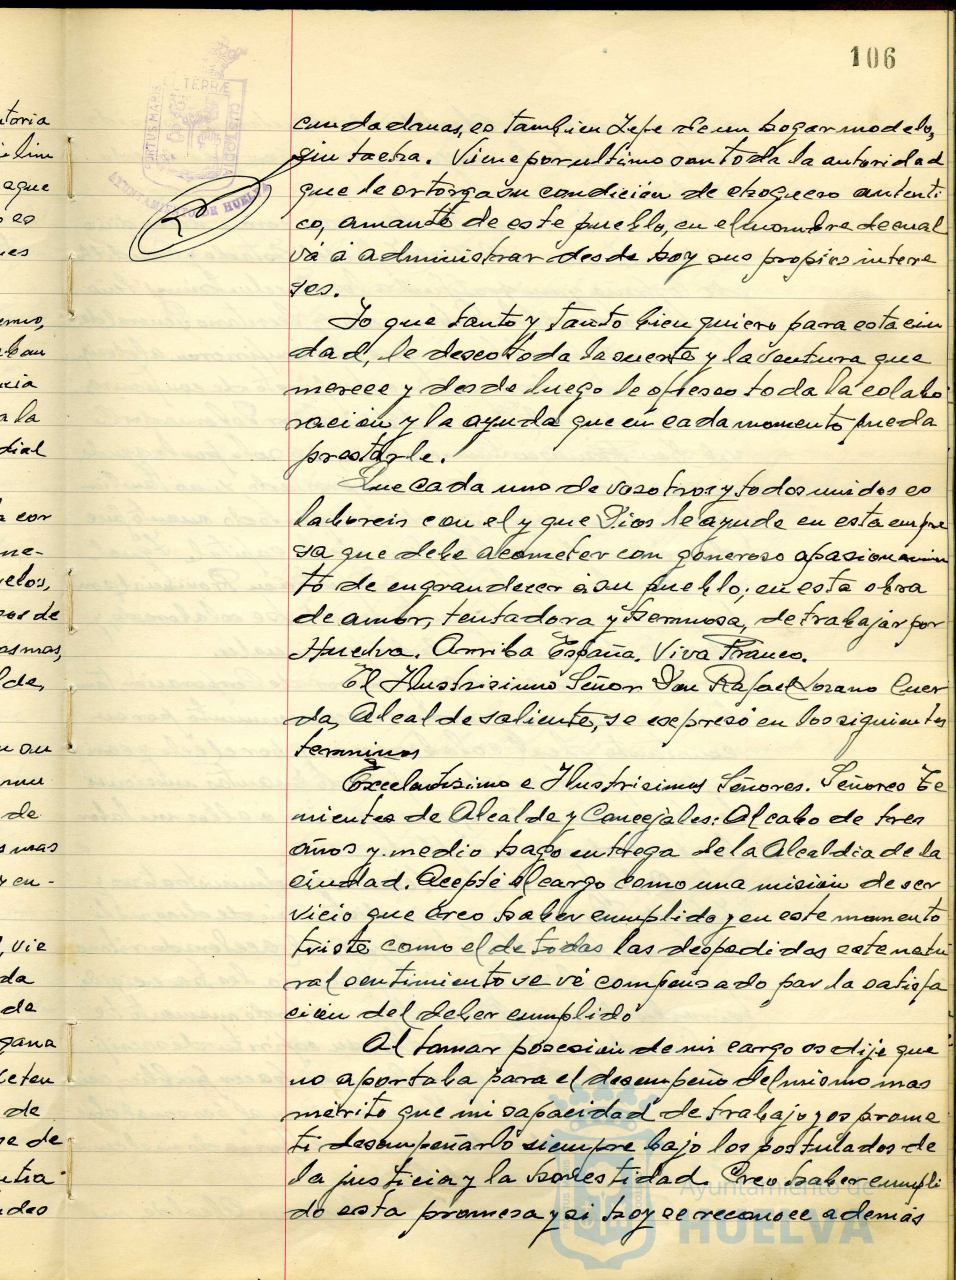 106
PORTUS MARIS ET TERRÆ CUSTODIA
AYUNTAMIENTO DE HUELVA
cuidadanas, es tambien Jefe de un hogar modelo,
sin tacha. Viene por ultimo con toda la autoridad
que le ortorga su condición de choquero autenti
co, amante de este pueblo, en el nombre de cual
vá á administrar desde hoy sus propios intere
ses.
Yo que tanto y tanto bien quiero para esta ciu
dad, le deseo toda la suerte y la ventura que
merece y desde luego le ofresco toda la colabo
ración y la ayuda que en cada momento pueda
prestarle.
Que cada uno de vosotros y todos unidos co
laboreis con el y que Dios le ayude en esta empre
sa que debe acometer con generoso apasionamien
to de engrandecer á su pueblo; en esta obra
de amor, tentadora y hermosa, de trabajar por
Huelva. Arriba España. Viva Franco.
El Ilustrisimo Señor Don Rafael Lozano Cuer
da, Alcalde saliente, se expresó en los siguientes
terminos
Excelentisimo e Ilustrisimos Señores. Señores Te
nientes de Alcalde y Concejales: Al cabo de tres
años y medio hago entrega de la Alcaldia de la
ciudad. Acepté el cargo como una misión de ser
vicio que creo haber cumplido y en este momento
triste como el de todas las despedidas este natu
ral sentimiento se vé compensado por la satisfa
ción del deber cumplido
Al tomar posesion de mi cargo os dije que
no aportaba para el desempeño del mismo mas
mérito que mi capacidad de trabajo y os prome
ti desempeñarlo siempre bajo los postulados de
la justicia y la honestidad. Creo haber cumpli
do esta promesa y si hoy se reconoce además
Ayuntamiento de
HUELVA